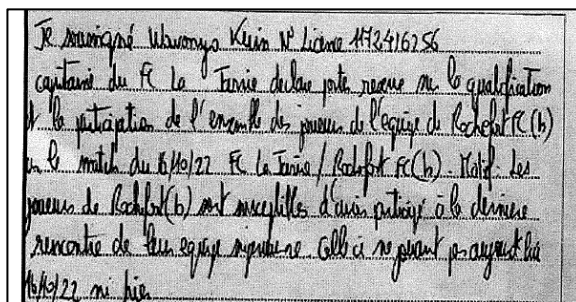 Je soussigné Wawonyo Kevin N° Licence 1172416256
capitaine du FC La Jarrie déclare porter reserve sur la qualification
et la participation de l'ensemble des joueurs de l'équipe de Rochefort FC (b)
sur le match du 16/10/22 FC La Jarrie / Rochefort FC (b). Motif: Les
joueurs de Rochefort (b) sont susceptibles d'avoir participé à la derniere
rencontre de leur equipe superieure. Celle ci ne jouant pas aujourd'hui
16/10/22 ni hier